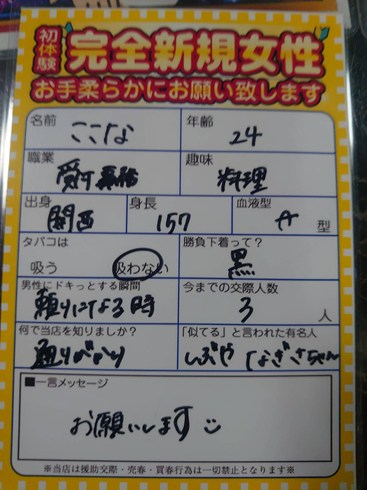 初体験
完全新規女性
お手柔らかにお願い致します
名前 ここな
年齢 24
職業 受付事務
趣味 料理
出身 関西
身長 157
血液型 A 型
タバコは
吸う 吸わない
勝負下着って?
黒
男性にドキっとする瞬間
頼りになる時
今までの交際人数
3 人
何で当店を知りましたか?
通りがかり
「似てる」と言われた有名人
しぶや なぎさちゃん
■一言メッセージ
お願いします
※当店は援助交際・売春・買春行為は一切禁止となります※